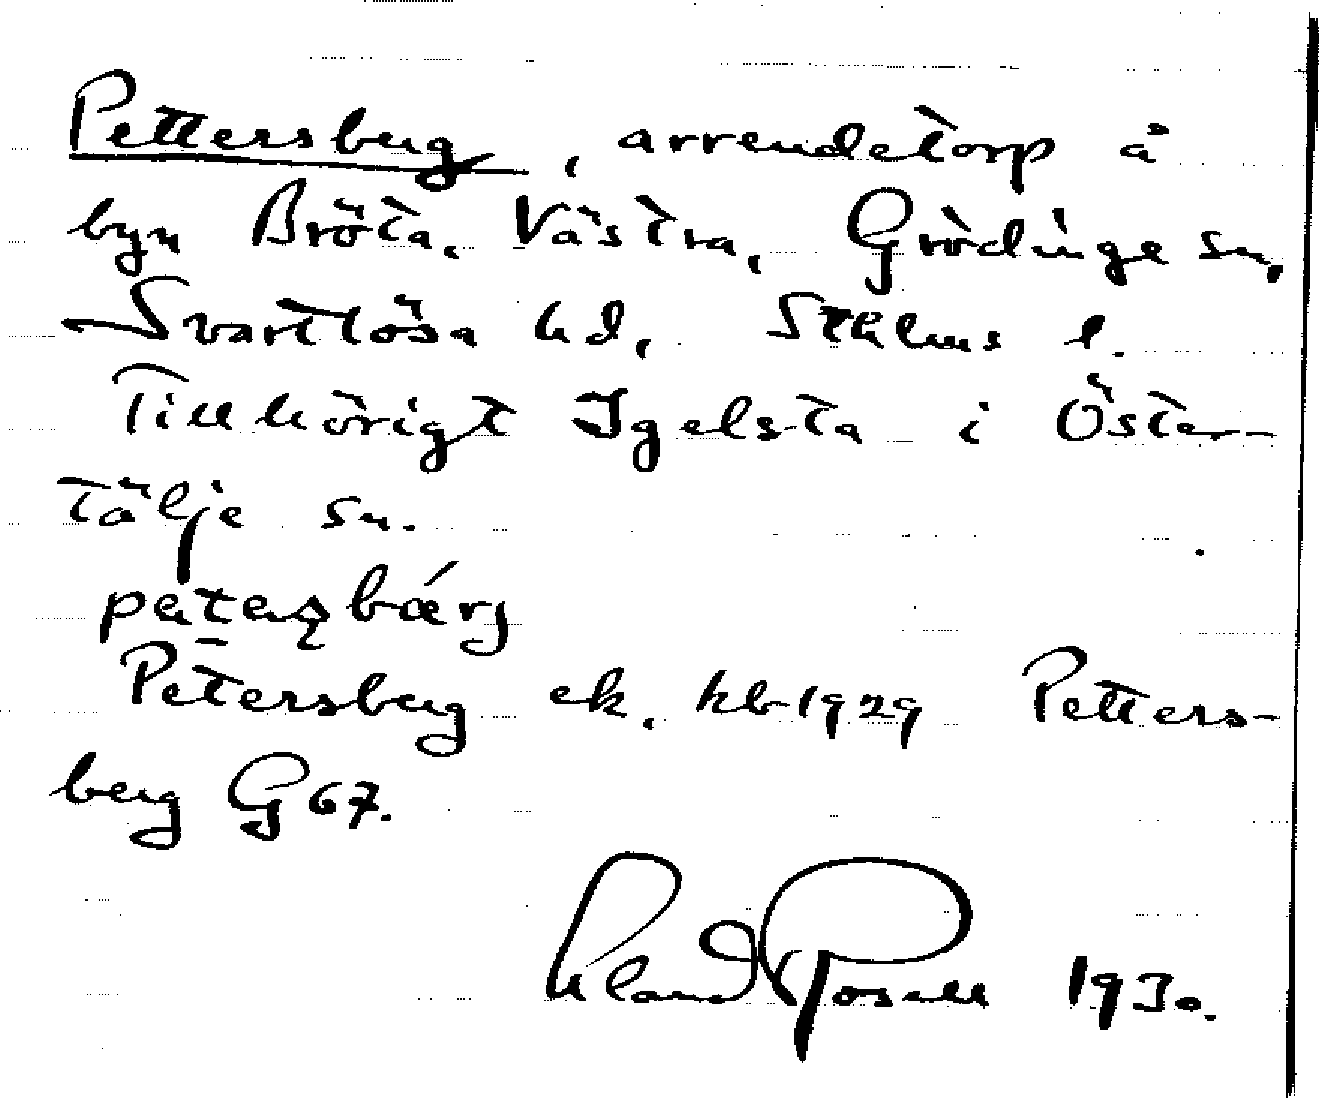 Pettersberg, arrendetorp å
byn Bröta, Västra, Grödinge sn,
Svartlösa hd, Sthlms l.
Tillhörigt Igelsta i Öster-
tälje sn.
Petersberg ek. kb 1929 Petters-
berg G 67.
1930.